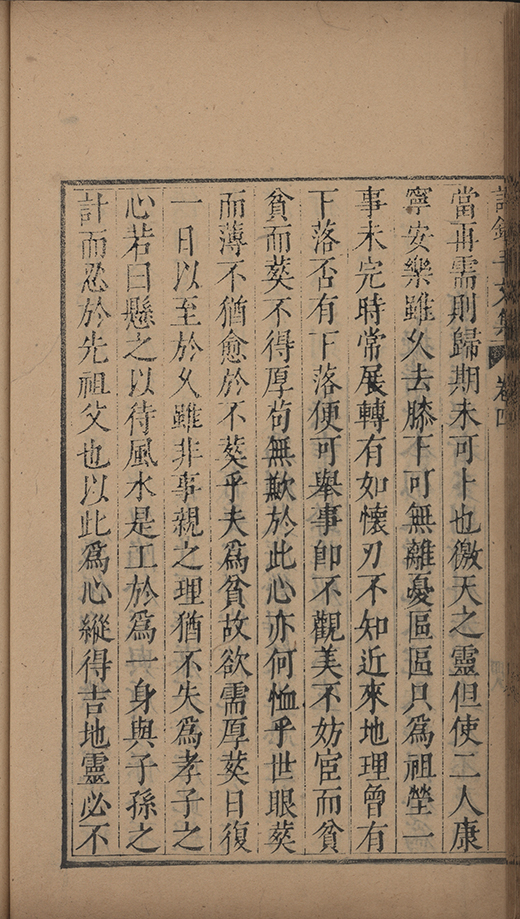 當再需則歸期未可卜也徼天之靈但使二人康
寧安樂雖久去膝下可無離憂區區只為祖塋一
事未完時常展轉有如懷刃不知近來地理曾有
下落否有下落便可舉事卽不觀美不妨宦而貧
貧而葬不得厚茍無歉於此心亦何恤乎世眼葬
而薄不猶愈於不葬乎夫為貧故欲需厚葬日復
一日以至於久雖非事親之理猶不失為孝子之
心若曰懸之以待風水是工於為一身與子孫之
計而忍於先祖父也以此為心縱得吉地靈必不